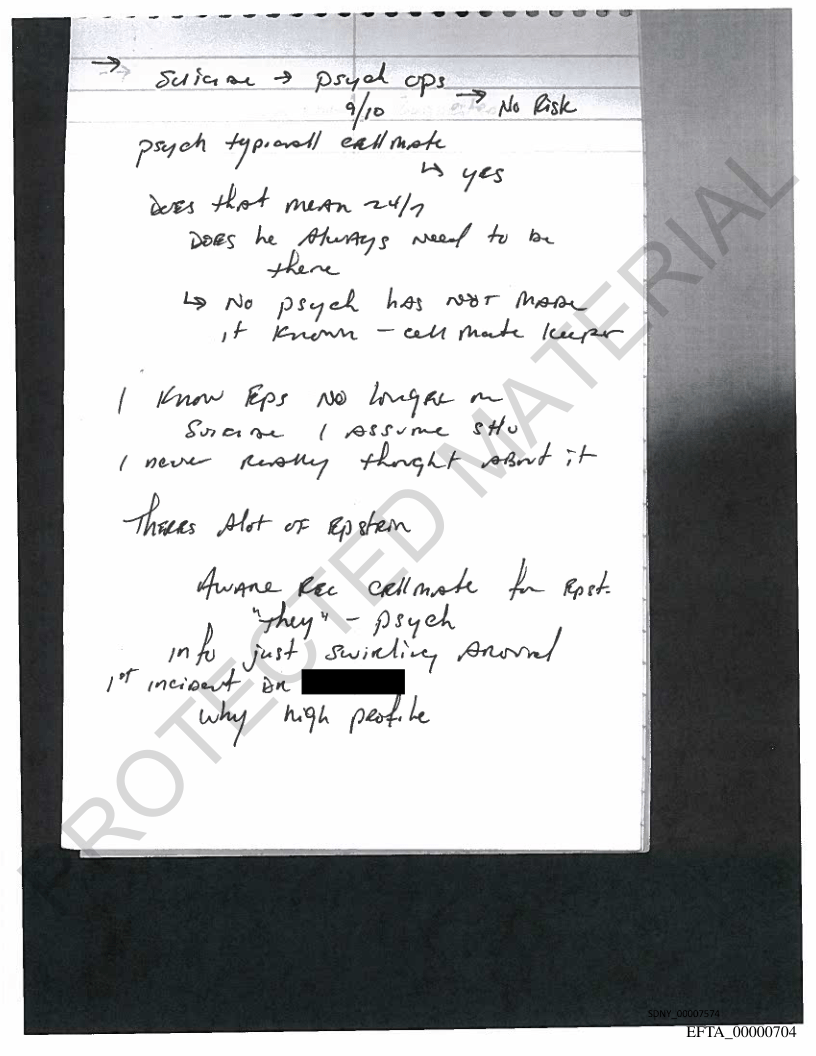 → Suicide → psych ops
9/10 → No Risk
psych typicall cellmate
↳ yes
Does that mean 24/7
DOES he Always need to be
there
↳ No psych has NOT MADE
it known – cell mate keeper
I Know Eps NO longer on
Suicide I ASSume SHU
I never Really thought ABout it
Theres Alot OF Epstein
Aware Rec cellmate for Epst.
"they" – psych
info just swirling Around
1st incident
why high profile
PROTECTED MATERIAL
SDNY_00007574
EFTA_00000704